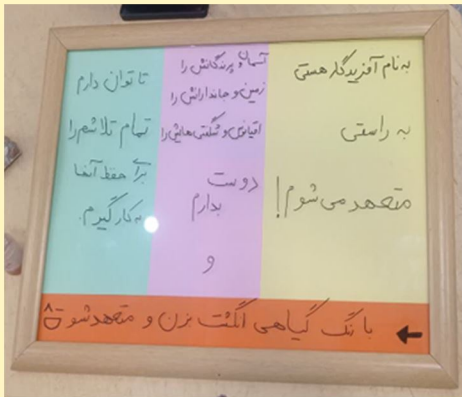 به نام آفریدگار هستی
به راستی
متعهد می شوم!
آسمان و پرندگانش را
زمین و جاندارانش را
اقیانوس و شگفتی هایش را
دوست
بدارم
و
تا توان دارم
تمام تلاشم را
برای حفظ آنها
به کار گیرم.
با رنگ گیاهی انگشت بزن و متعهد شو